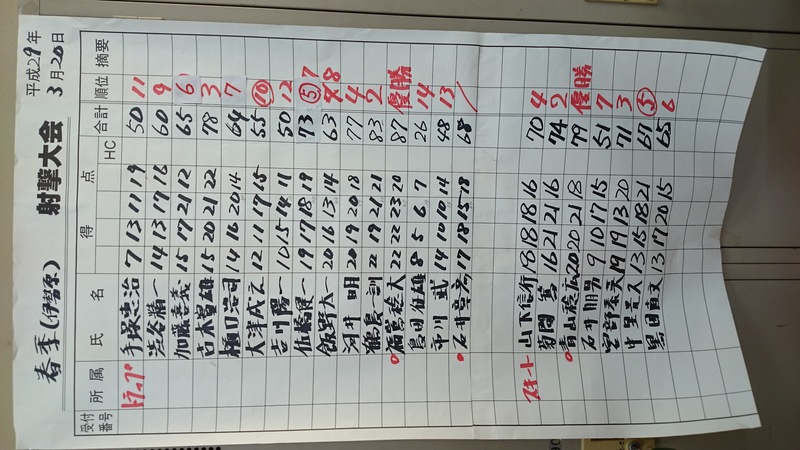 春季(伊勢原) 射撃大会 平成29年3月20日
受付番号 所属 氏名 得点 HC 合計 順位 摘要
トラップ
手塚忠治 7 13 11 19 50 11
渋谷清一 14 13 17 16 60 9
加藤善義 15 17 21 12 65 6
古木豊雄 15 20 21 22 78 3
樋口浩司 14 16 20 14 64 7
大津成之 12 11 17 15 55 10
吉川陽一 10 15 14 11 50 12
佐藤栄一 19 17 18 19 73 5
飯野大一 20 16 13 14 63 8
河井明 20 19 20 18 77 4
訓 22 19 21 21 83 2
大 22 22 23 20 87 優勝
島田征雄 8 5 6 7 26 14
市川武 14 10 10 14 48 13
石井 17 18 15 18 68
スキート
山下信行 18 18 18 16 70 4
菊間篤 16 21 21 16 74 2
青山稔 20 20 21 18 79 優勝
石井朋男 9 10 17 15 51 7
宮野 19 19 13 20 71 3
中里 13 15 18 21 67 5
黒田 13 17 20 15 65 6